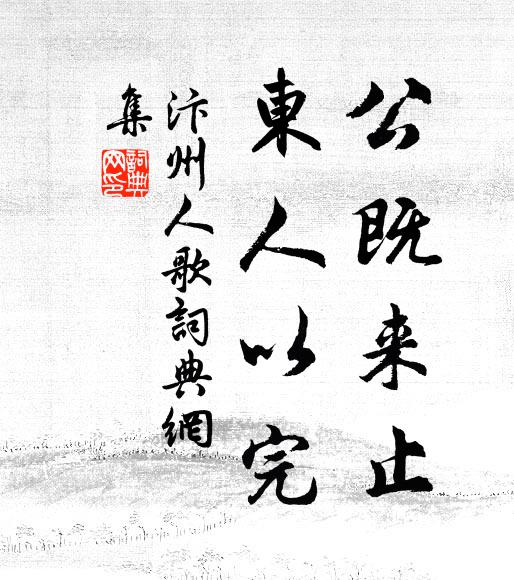 公既来止
東人以完
汴州人歌詞典網
集
詞典
网印